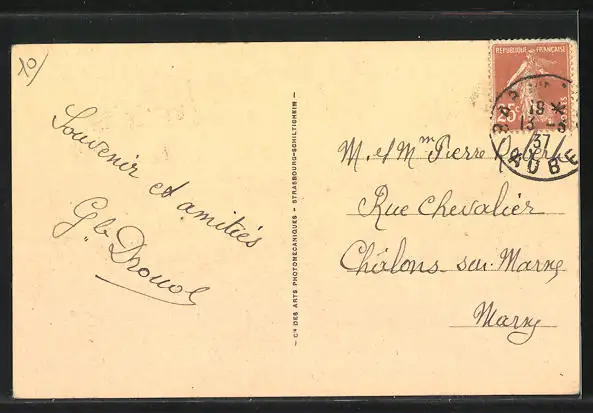 10/
Souvenir et amitiés
G. Drouot
— Cie DES ARTS PHOTOMECANIQUES - STRASBOURG-SCHILTIGHEIM —
REPUBLIQUE FRANÇAISE
25
19
13 -3
37
AUBE
M. et Mme Pierre
Rue Chevalier
Châlons sur Marne
Marne